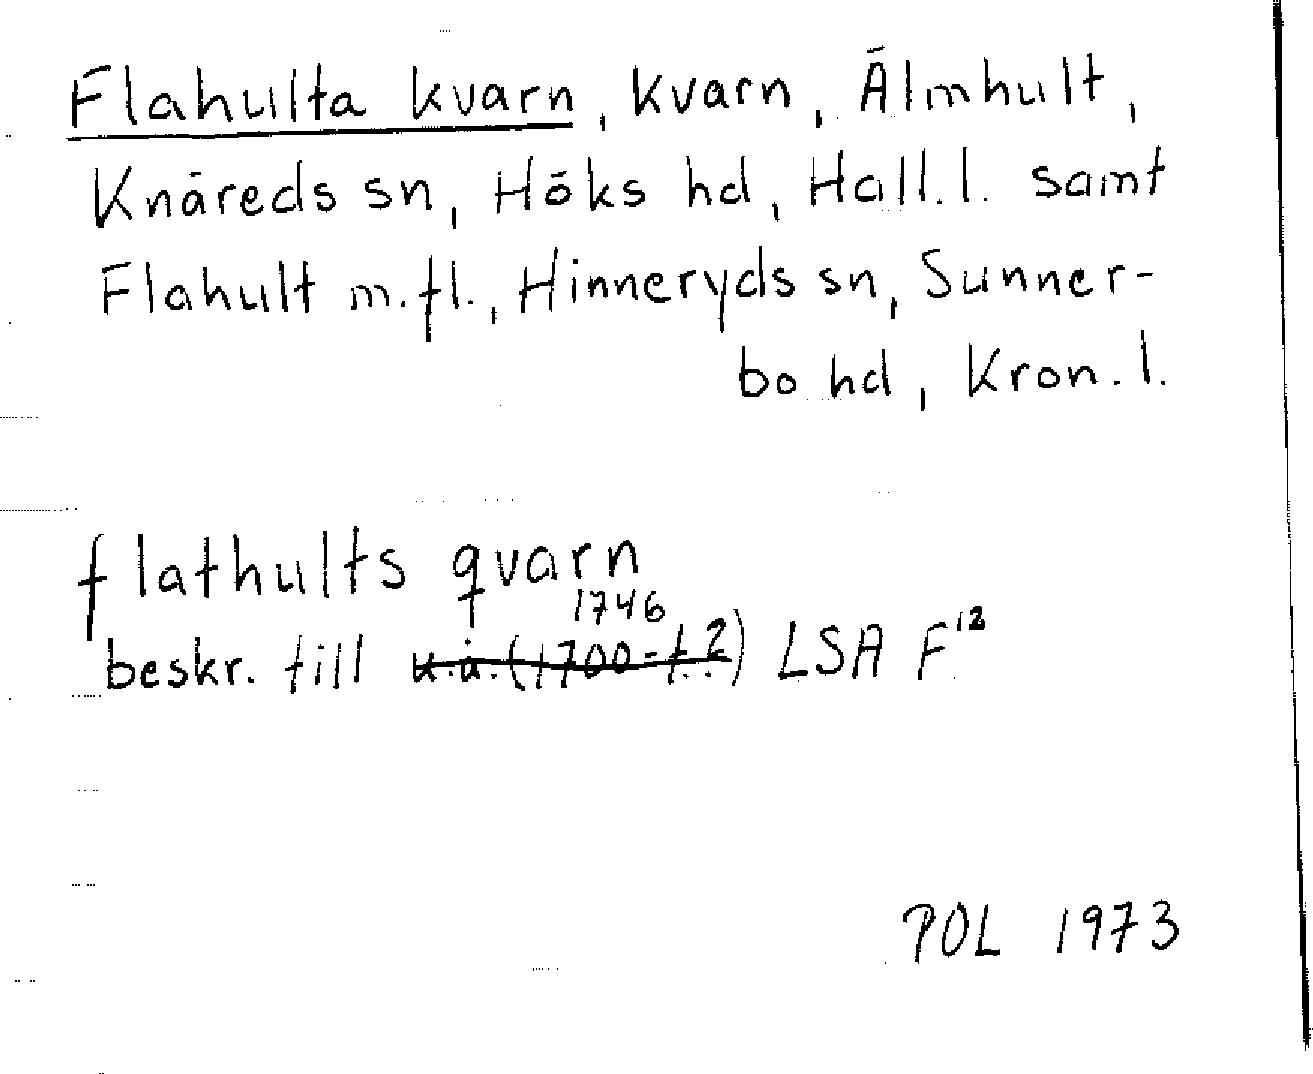 Flahulta kvarn, kvarn, Älmhult,
Knäreds sn, Höks hd, Hall. l. samt
Flahult m. fl., Hinneryds sn, Sunner-
bo hd, Kron. l.
flathults qvarn
1746
beskr. till u.å. (1700-t.?) LSA F¹²
POL 1973